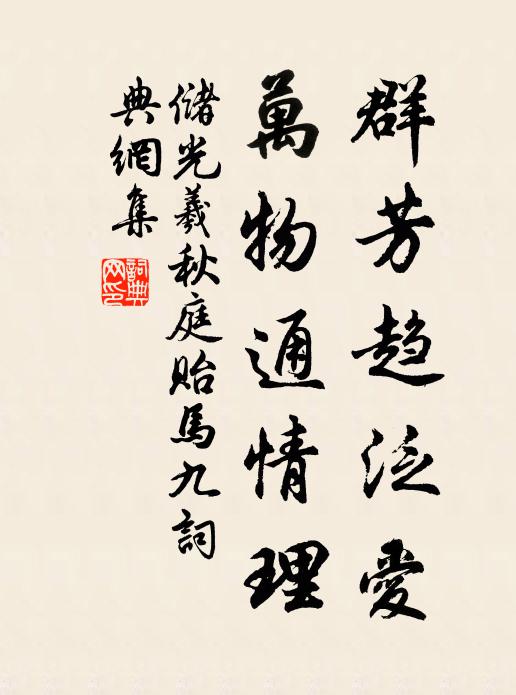 群芳趋泛愛
萬物通情理
儲光羲秋庭貽馬九詞
典網集
詞典网印